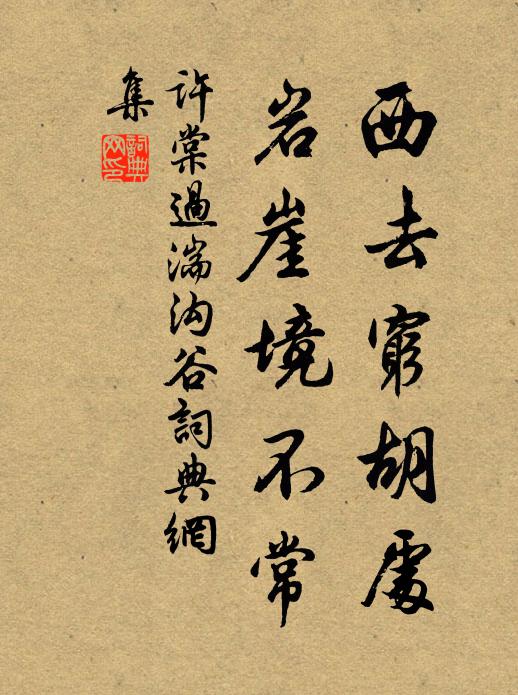 西去窮胡處
岩崖境不常
許棠過湍沟谷詞典網
集
詞典
网印